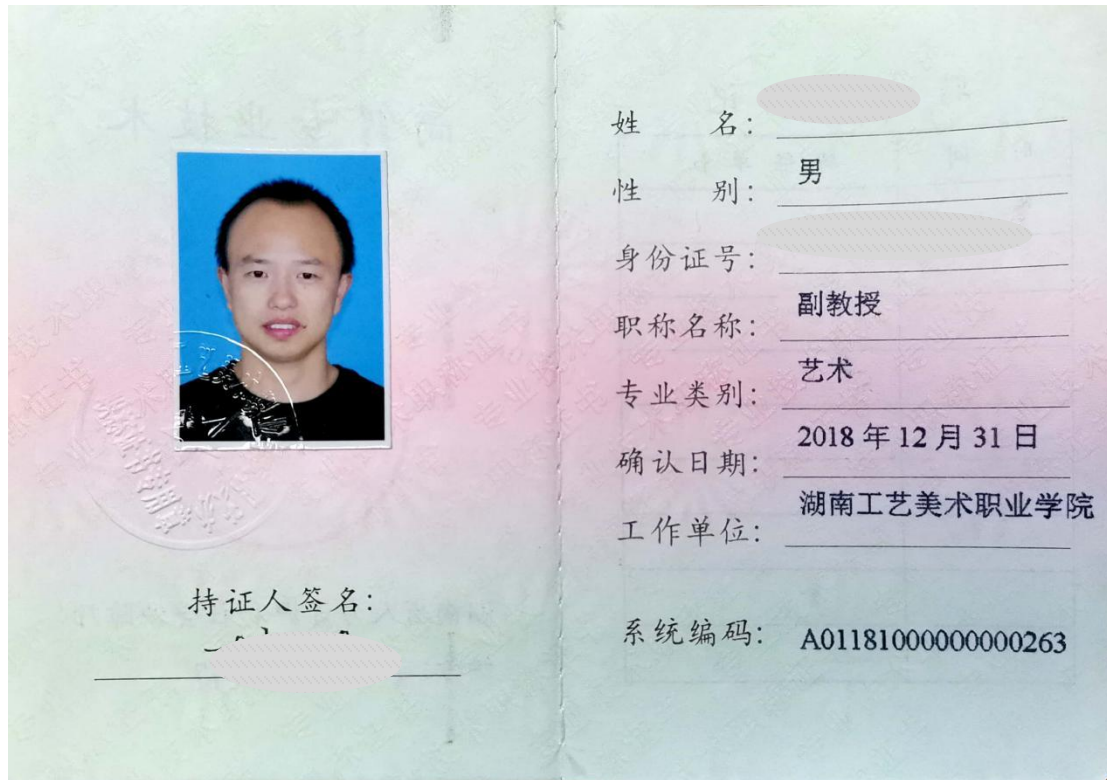 持证人签名:
姓 名:
性 别: 男
身份证号:
职称名称: 副教授
专业类别: 艺术
确认日期: 2018 年 12 月 31 日
工作单位: 湖南工艺美术职业学院
系统编码: A01181000000000263